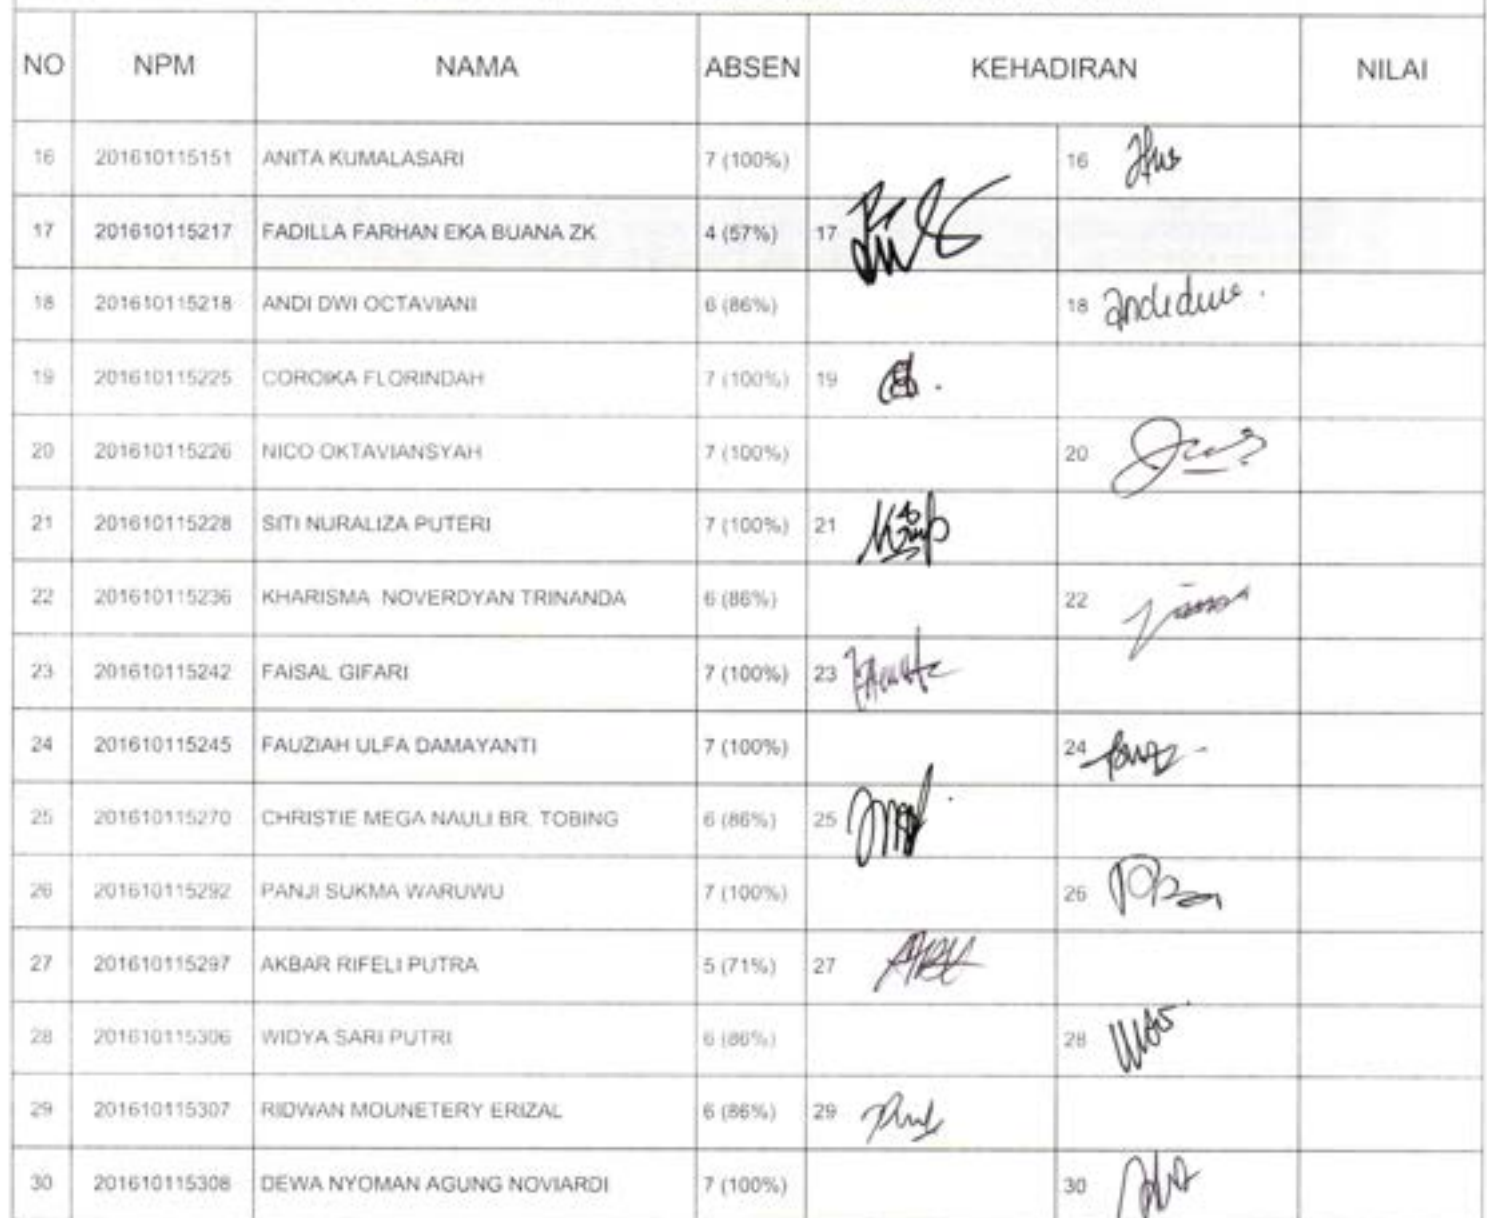 NO NPM NAMA ABSEN KEHADIRAN NILAI
16 201610115151 ANITA KUMALASARI 7 (100%) 16
17 201610115217 FADILLA FARHAN EKA BUANA ZK 4 (57%) 17
18 201610115218 ANDI DWI OCTAVIANI 6 (86%) 18
19 201610115225 COROIKA FLORINDAH 7 (100%) 19
20 201610115226 NICO OKTAVIANSYAH 7 (100%) 20
21 201610115228 SITI NURALIZA PUTERI 7 (100%) 21
22 201610115236 KHARISMA NOVERDYAN TRINANDA 6 (86%) 22
23 201610115242 FAISAL GIFARI 7 (100%) 23
24 201610115245 FAUZIAH ULFA DAMAYANTI 7 (100%) 24
25 201610115270 CHRISTIE MEGA NAULI BR. TOBING 6 (86%) 25
26 201610115292 PANJI SUKMA WARUWU 7 (100%) 26
27 201610115297 AKBAR RIFELI PUTRA 5 (71%) 27
28 201610115306 WIDYA SARI PUTRI 6 (86%) 28
29 201610115307 RIDWAN MOUNETERY ERIZAL 6 (86%) 29
30 201610115308 DEWA NYOMAN AGUNG NOVIARDI 7 (100%) 30